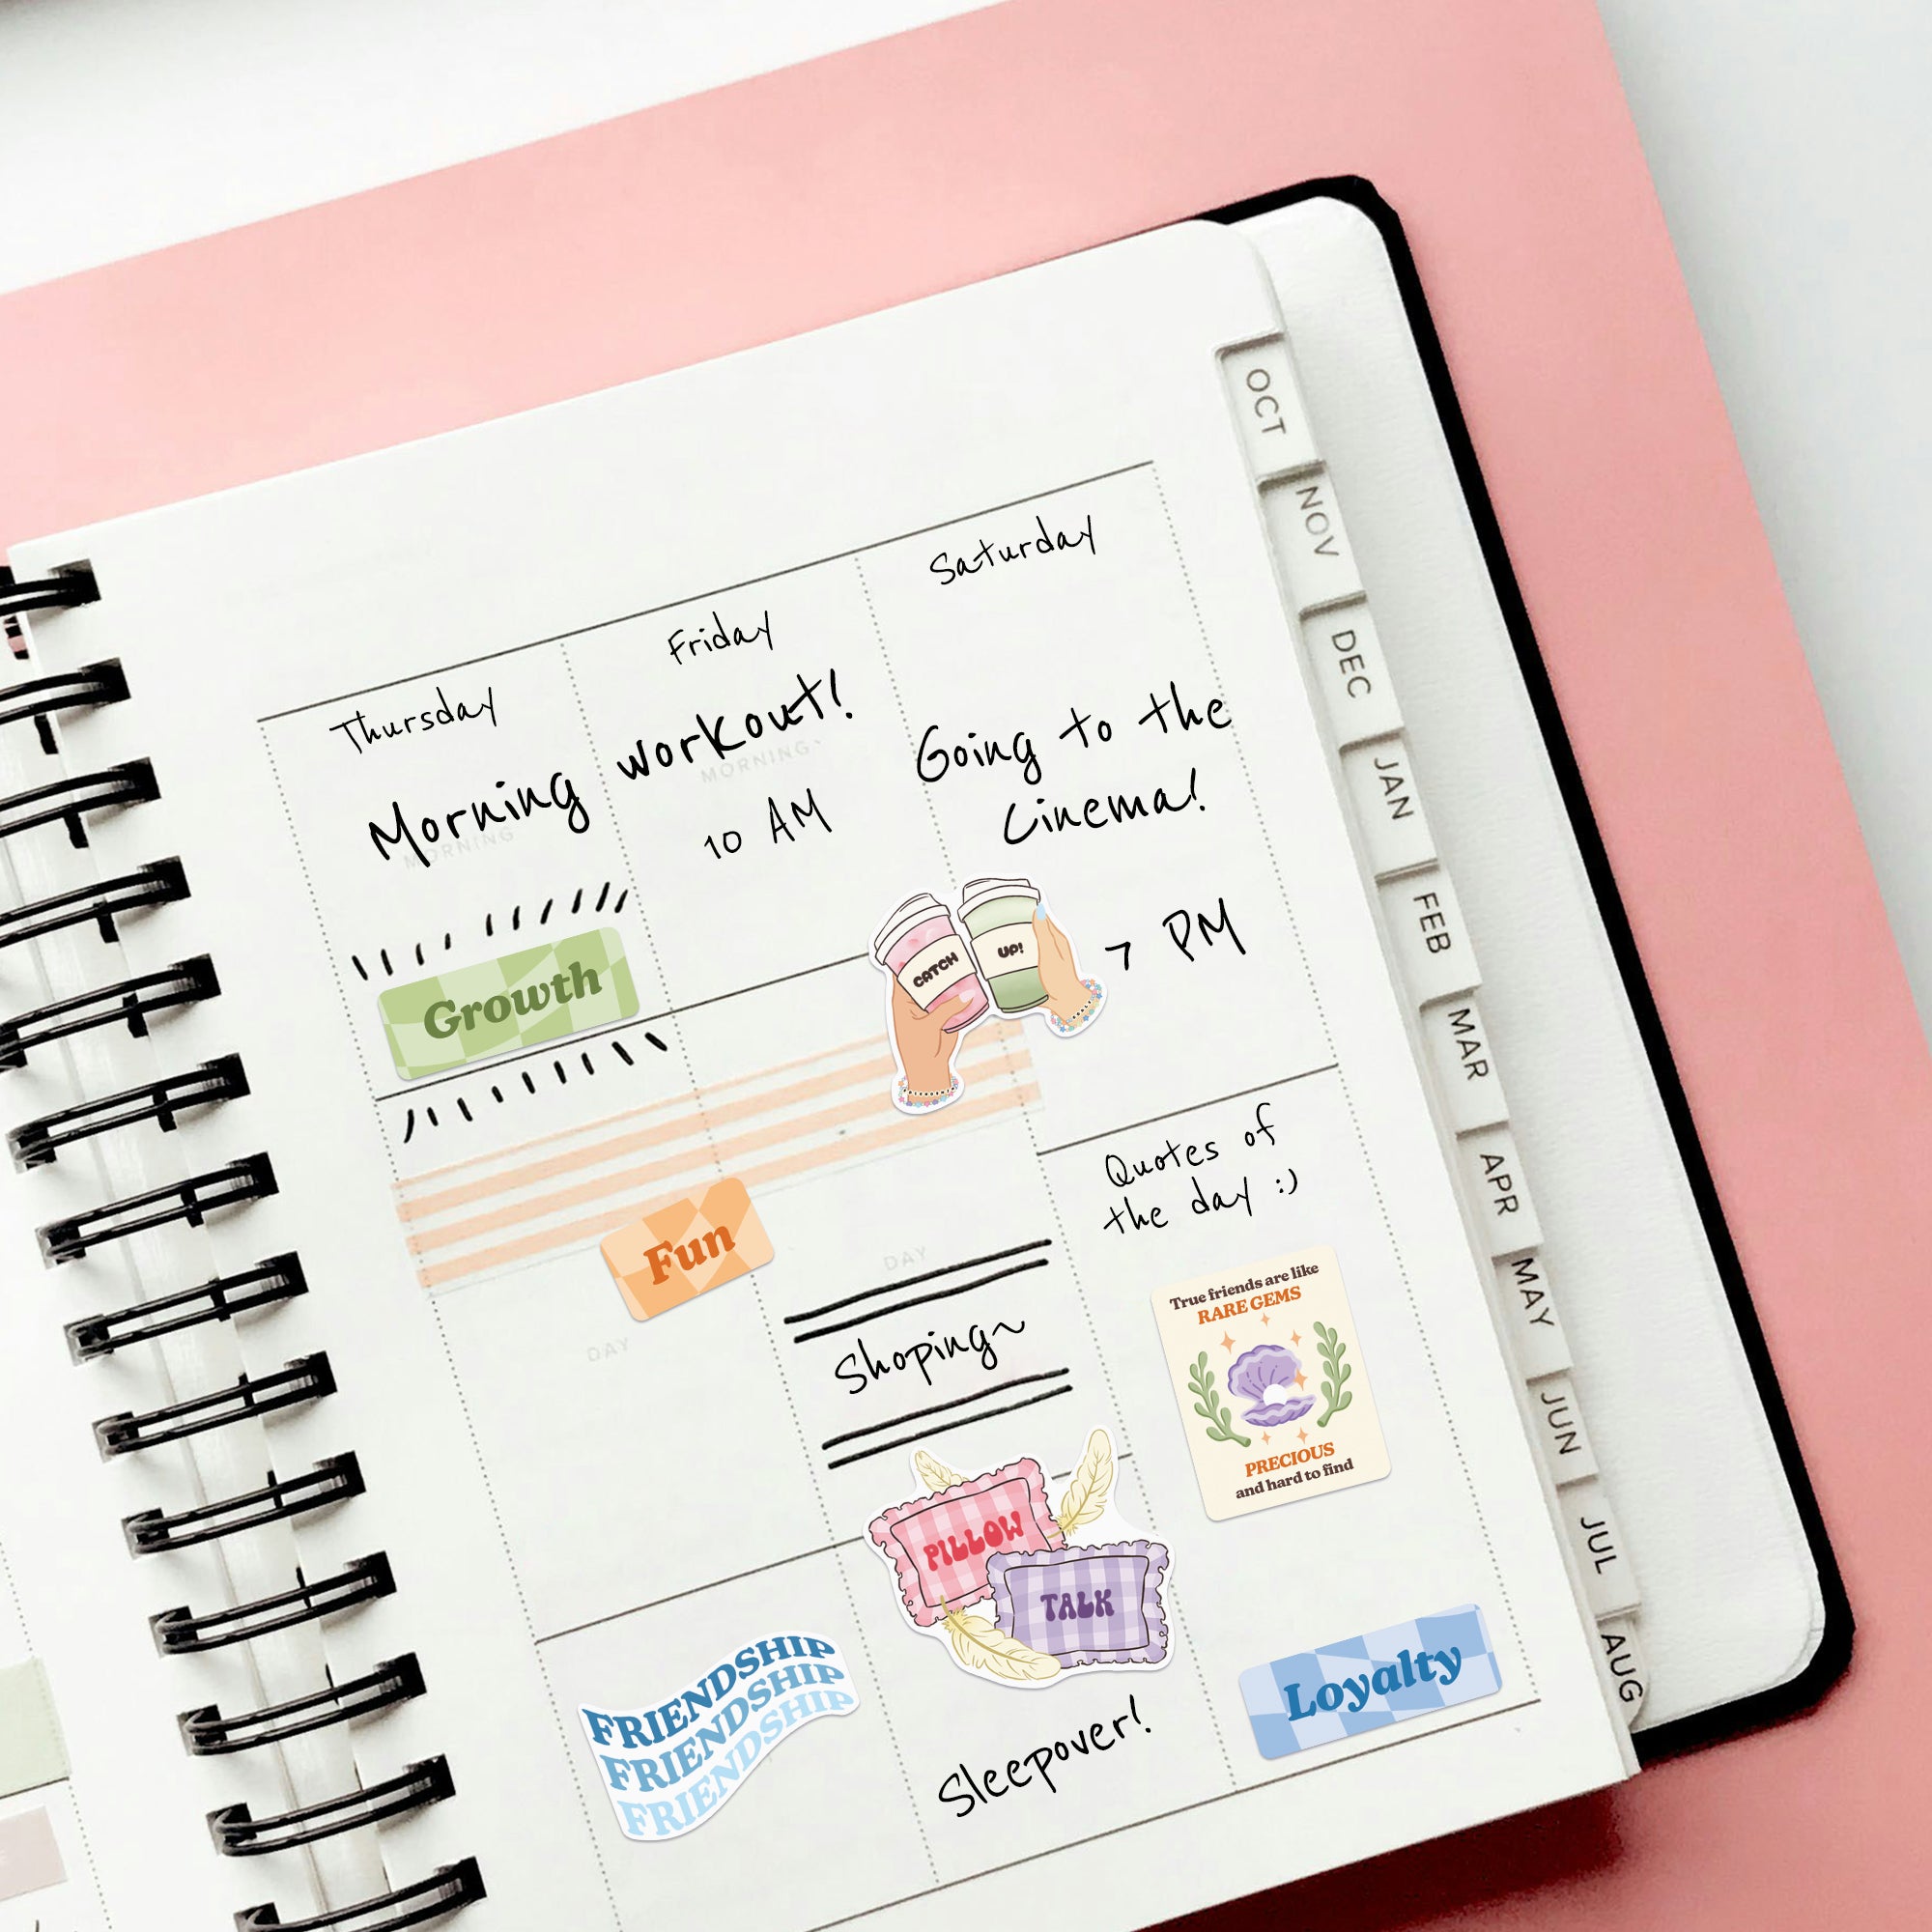 OCT
NOV
DEC
JAN
FEB
MAR
APR
MAY
JUN
JUL
AUG
Thursday
Friday
Saturday
Morning workout!
MORNING
MORNING
10 AM
Going to the
Cinema!
7 PM
CATCH
UP!
Growth
Fun
DAY
DAY
Shoping~
Quotes of
the day :)
True friends are like
RARE GEMS
PRECIOUS
and hard to find
PILLOW
TALK
Sleepover!
FRIENDSHIP
FRIENDSHIP
FRIENDSHIP
Loyalty